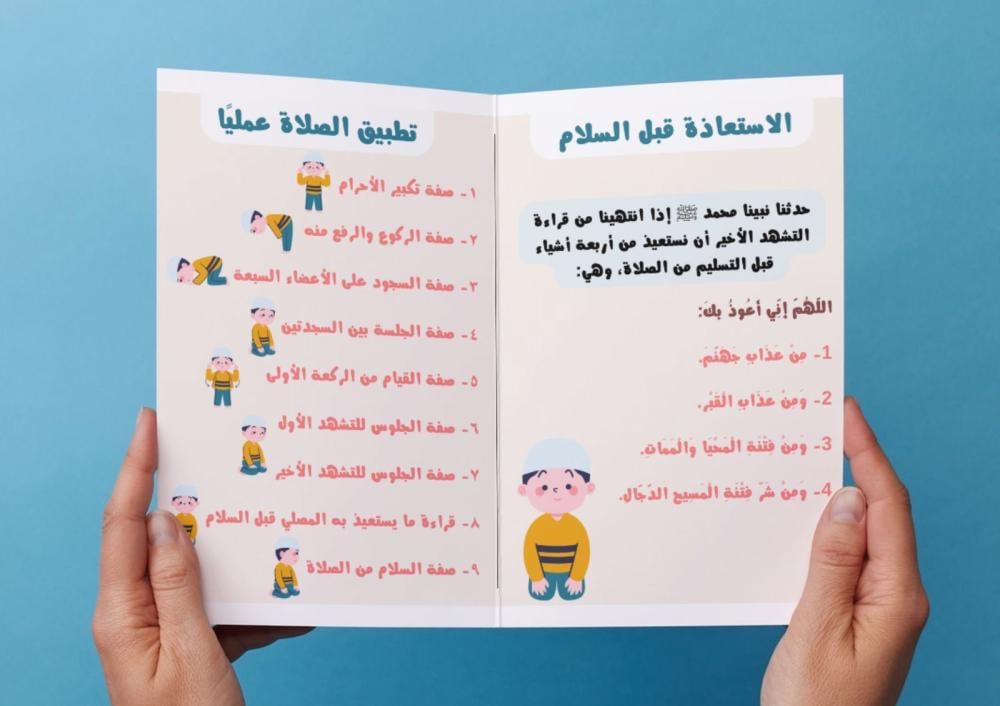 الاستعاذة قبل السلام
حدثنا نبينا محمد ﷺ إذا انتهينا من قراءة
التشهد الأخير أن نستعيذ من أربعة أشياء
قبل التسليم من الصلاة، وهي:
اللَّهُمَّ إِنِّي أَعُوذُ بِكَ:
1- مِنْ عَذَابِ جَهَنَّمَ.
2- وَمِنْ عَذَابِ الْقَبْرِ.
3- وَمِنْ فِتْنَةِ الْمَحْيَا وَالْمَمَاتِ.
4- وَمِنْ شَرِّ فِتْنَةِ الْمَسِيحِ الدَّجَّالِ.
تطبيق الصلاة عمليًا
١- صفة تكبير الأحرام
٢- صفة الركوع والرفع منه
٣- صفة السجود على الأعضاء السبعة
٤- صفة الجلسة بين السجدتين
٥- صفة القيام من الركعة الأولى
٦- صفة الجلوس للتشهد الأول
٧- صفة الجلوس للتشهد الأخير
٨- قراءة ما يستعيذ به المصلي قبل السلام
٩- صفة السلام من الصلاة